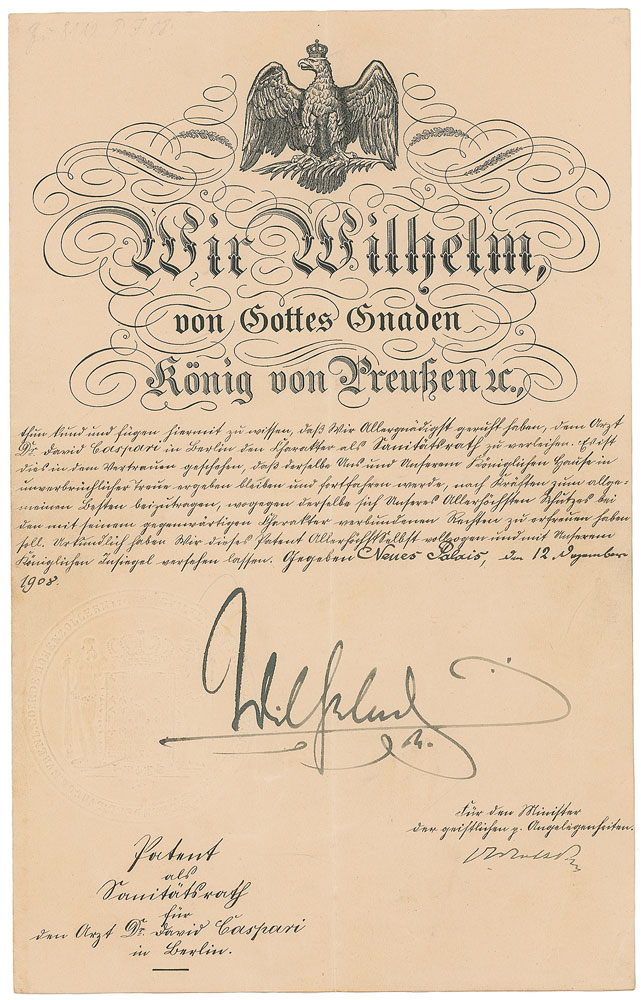 Wir Wilhelm,
von Gottes Gnaden
König von Preußen ꝛc.,
thun kund und fügen hiermit zu wissen, daß Wir Allergnädigst geruht haben, dem Arzt
Dr. David Caspari in Berlin den Charakter als Sanitätsrath zu verleihen. Es ist
dies in dem Vertrauen geschehen, daß derselbe Uns und Unserem Königlichen Hause in
unverbrüchlicher Treue ergeben bleiben und fortfahren werde, nach Kräften zum allge-
meinen Besten beizutragen, wogegen derselbe sich Unseres Allerhöchsten Schutzes bei
den mit seinem gegenwärtigen Charakter verbundenen Rechten zu erfreuen haben
soll. Urkundlich haben Wir dieses Patent AllerhöchstSelbst vollzogen und mit Unserem
Königlichen Insiegel versehen lassen. Gegeben Neues Palais, den 12. Dezember
1908.
Wilhelm
R.
Für den Minister
der geistlichen p. Angelegenheiten.
Patent
als
Sanitätsrath
für
den Arzt Dr. David Caspari
in Berlin.